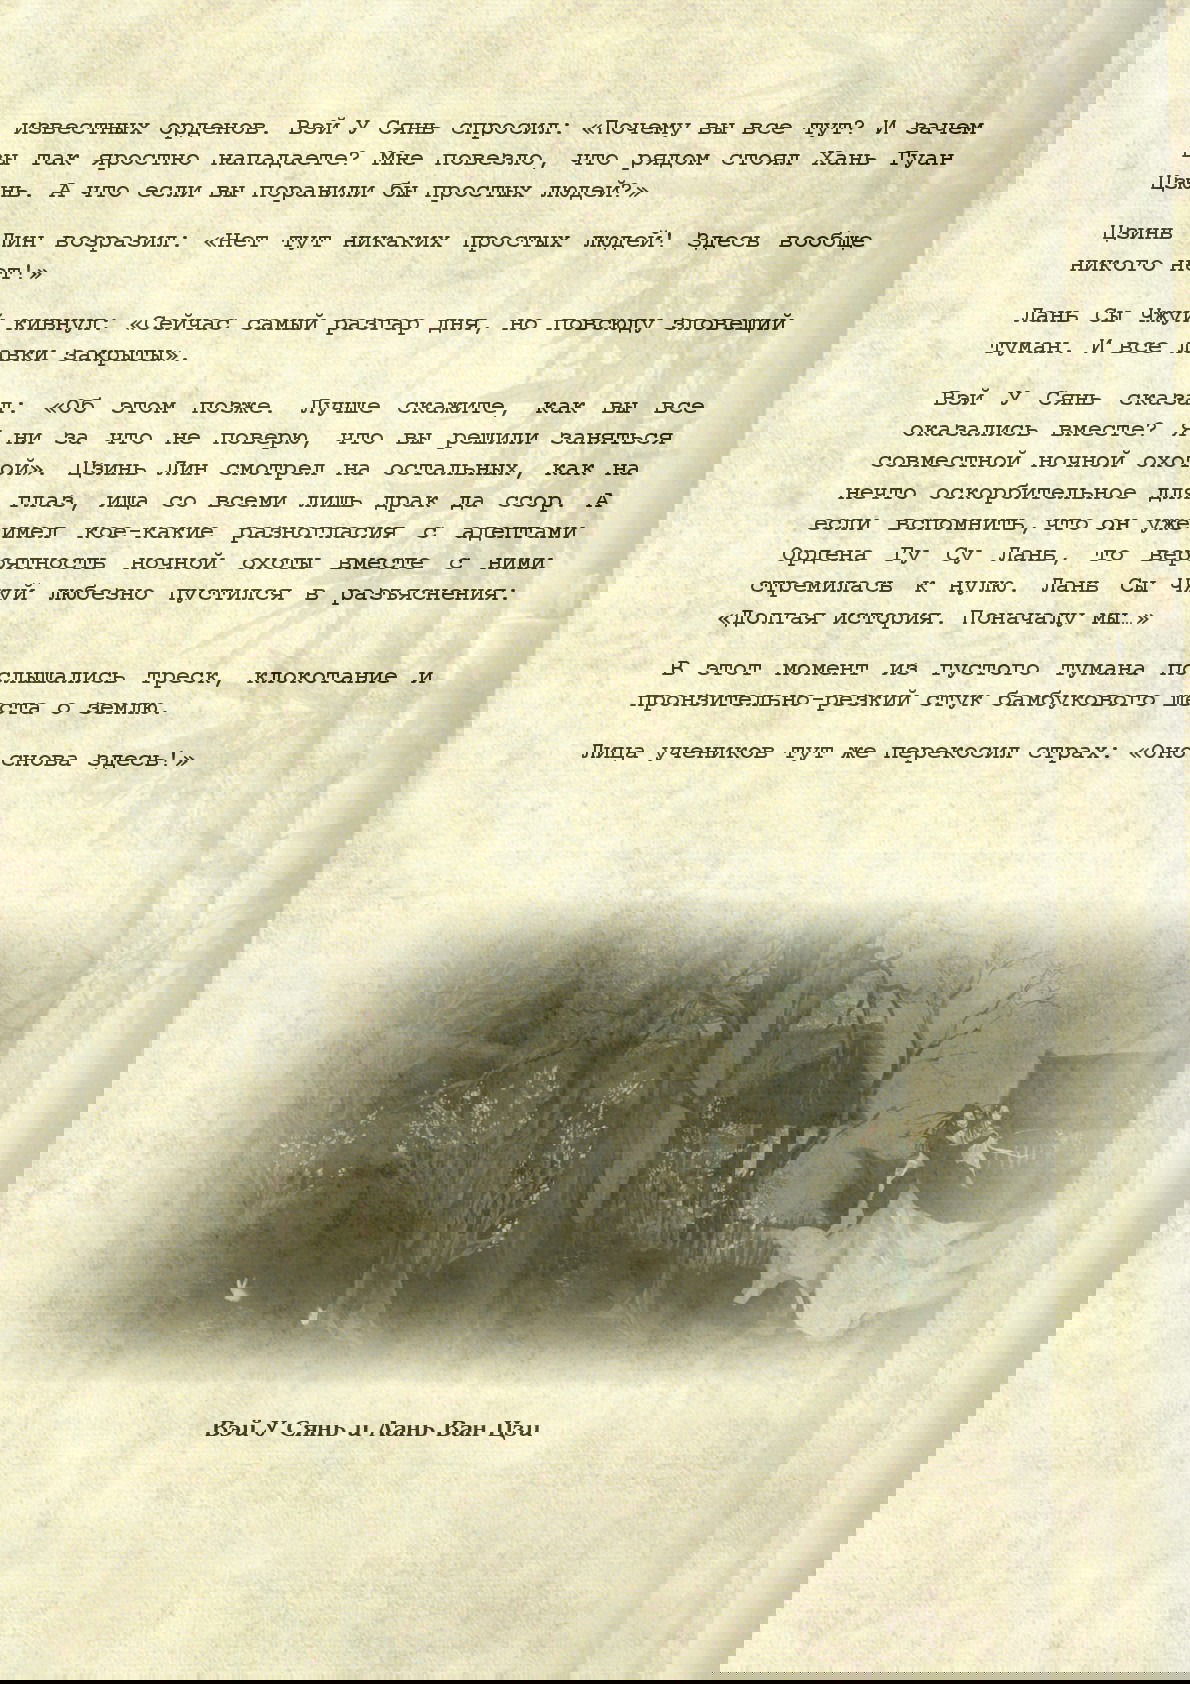 известных орденов. Вэй У Сянь спросил: «Почему вы все тут? И зачем
вы так яростно нападаете? Мне повезло, что рядом стоял Хань Гуан
Цзюнь. А что если вы поранили бы простых людей?»
Цзинь Лин возразил: «Нет тут никаких простых людей! Здесь вообще
никого нет!»
Лань Сы Чжуй кивнул: «Сейчас самый разгар дня, но повсюду зловещий
туман. И все лавки закрыты».
Вэй У Сянь сказал: «Об этом позже. Лучше скажите, как вы все
оказались вместе? Я ни за что не поверю, что вы решили заняться
совместной ночной охотой». Цзинь Лин смотрел на остальных, как на
нечто оскорбительное для глаз, ища со всеми лишь драк да ссор. А
если вспомнить, что он уже имел кое-какие разногласия с адептами
Ордена Гу Су Лань, то вероятность ночной охоты вместе с ними
стремилась к нулю. Лань Сы Чжуй любезно пустился в разъяснения:
«Долгая история. Поначалу мы…»
В этот момент из густого тумана послышались треск, клокотание и
пронзительно-резкий стук бамбукового шеста о землю.
Лица учеников тут же перекосил страх: «Оно снова здесь!»
Вэй У Сянь и Лань Ван Цзи